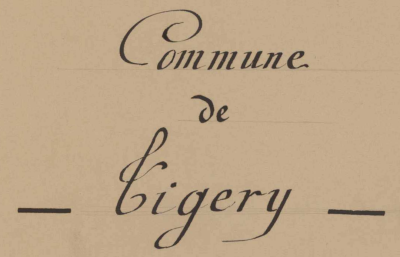 Commune
de
Tigery